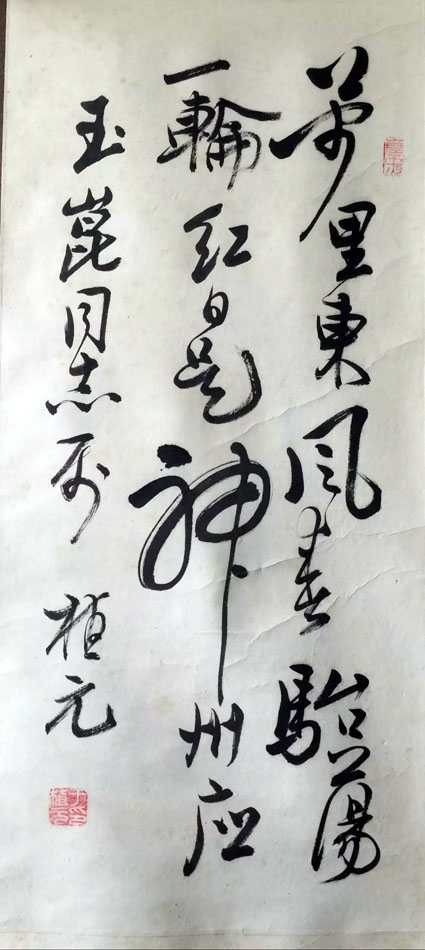 萬里東風春駘蕩
一輪紅日是神州应
玉崑同志属 植元